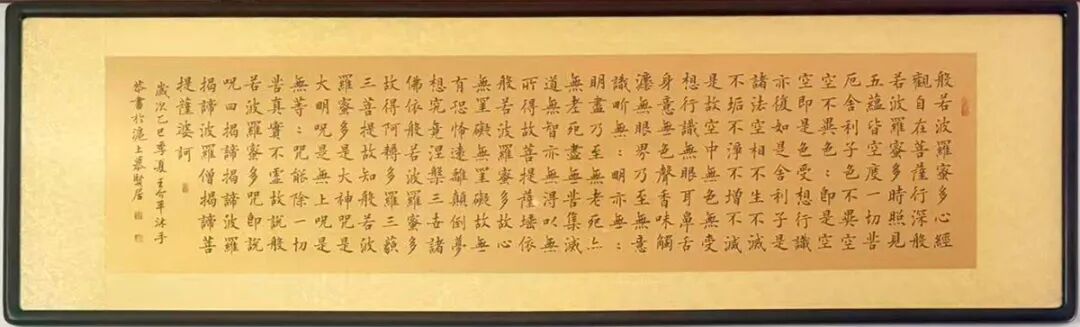 般若波羅蜜多心經
觀自在菩薩行深般
若波羅蜜多時照見
五蘊皆空度一切苦
厄舍利子色不異空
空不異色：即是空
空即是色受想行識
亦復如是舍利子是
諸法空相不生不滅
不垢不淨不增不減
是故空中無色無受
想行識無眼耳鼻舌
身意無色聲香味觸
灋無眼界乃至無意
識界無：明亦無：
明盡乃至無老死亦
無老死盡無苦集滅
道無智亦無得以無
所得故菩提薩埵依
般若波羅蜜多故心
無罣礙無罣礙故無
有恐怖遠離顛倒夢
想究竟涅槃三世諸
佛依般若波羅蜜多
故得阿耨多羅三藐
三菩提故知般若波
羅蜜多是大神咒是
大明咒是無上咒是
無等：咒能除一切
苦真實不虛故說般
若波羅蜜多咒即說
咒曰揭諦揭諦波羅
揭諦波羅僧揭諦菩
提薩婆訶
歲次乙巳季夏王介平沐手
恭書於滬上慕賢居